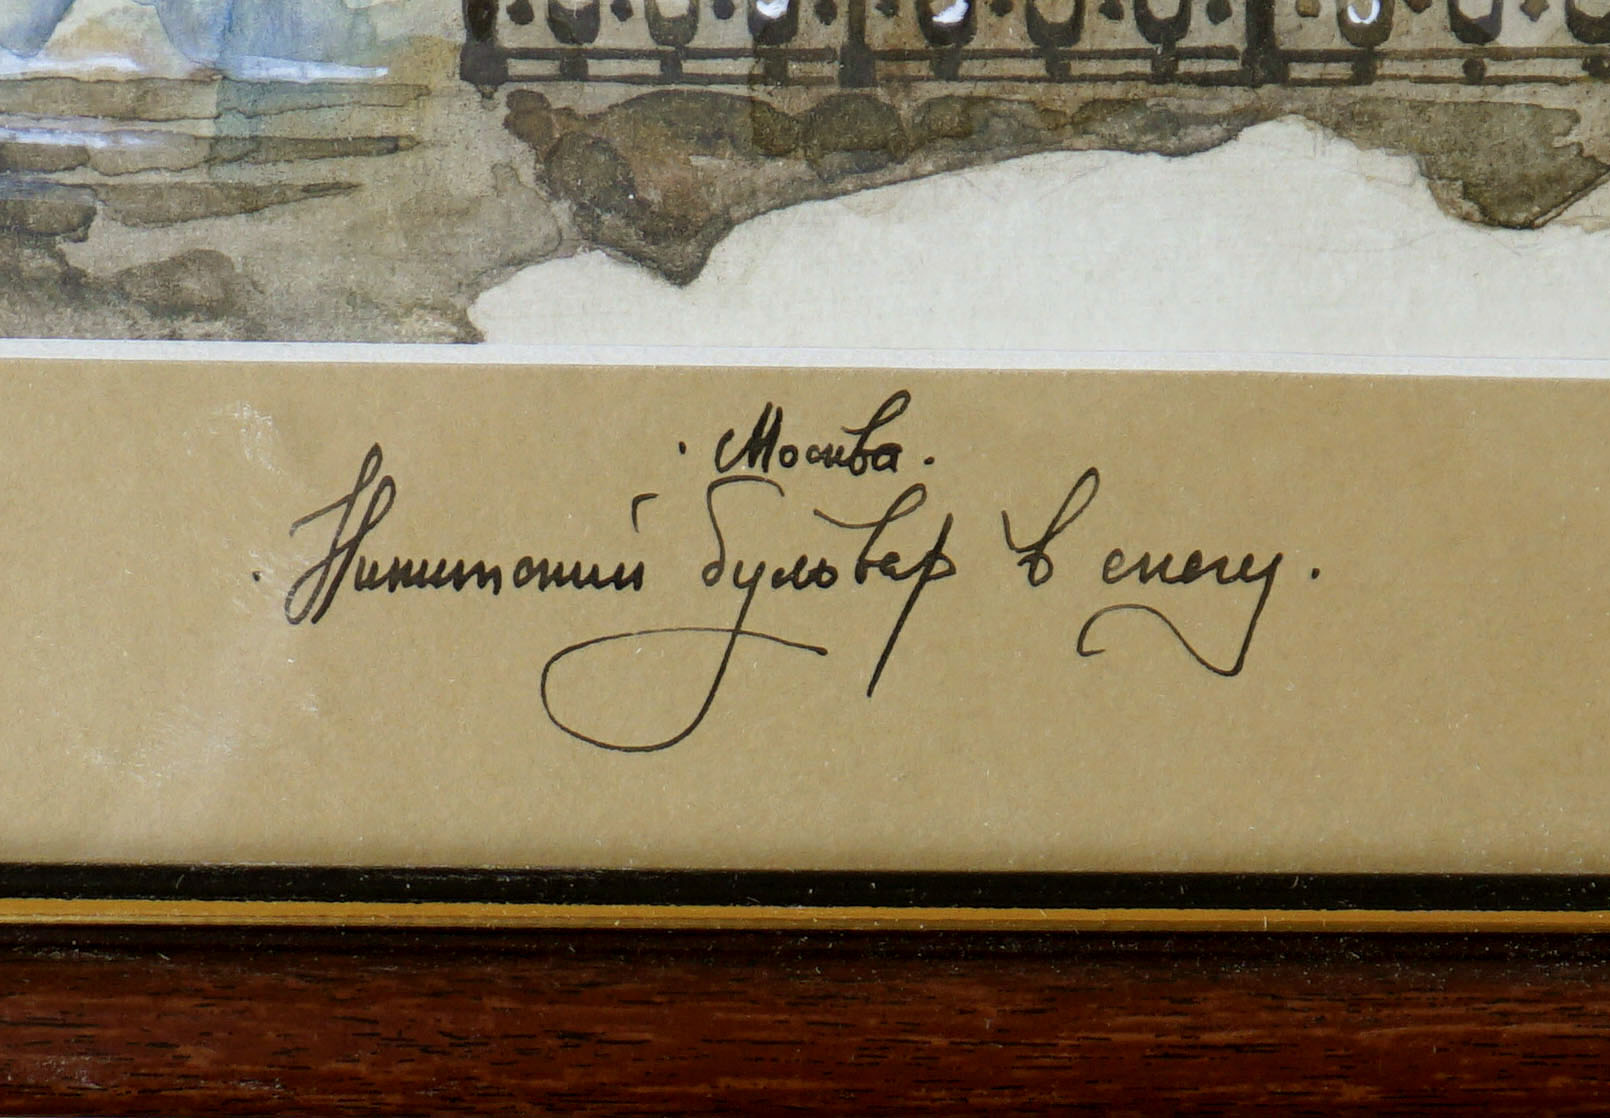 · Москва.
· Никитский бульвар в снегу.